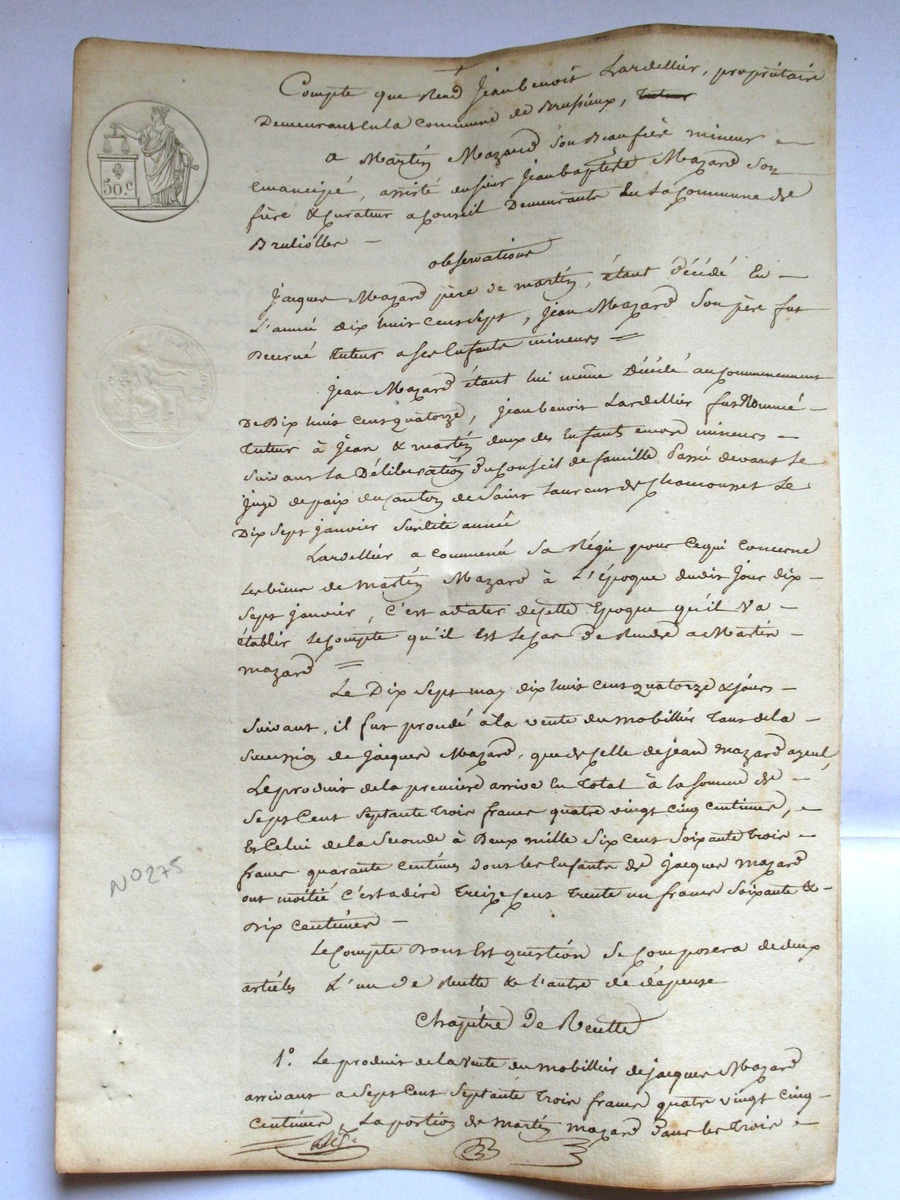 50.c
Compte que Rend Jeanbenoit Lardellier, propriétaire
Demeurant En la Commune de Brussieux, tuteur
a Martin Mazard Son Beaufrère mineur
Emancipé, assisté du sieur Jeanbaptiste Mazard Son
frère & Curateur a Conseil Demeurants En La Commune de
Brulioles
observations
Jacques Mazard père de martin, étant Décédé En
L'année dix huit cent sept, Jean Mazard Son père fut
Decerné tuteur a ses Enfants mineurs =
Jean Mazard étant lui même Décédé au Commencement
De Dix huit cent quatorze, Jeanbenoit Lardellier fut Nommé
tuteur à Jean & martin deux des Enfants encore mineurs
Suivant la Délibération du Conseil de famille Passé devant le
Juge de paix du Canton de Saint Laurent de Chamousset Le
Dix Sept janvier Susdite année
Lardellier a Commencé Sa Régie pour Cequi Concerne
Les biens de Martin Mazard à L'Epoque dudit Jour dix
Sept janvier, C'est a dater de Cette Epoque qu'il Va
établir le Compte qu'il Est le Cas de Rendre a Martin
mazard =
Le Dix Sept may dix huit Cent quatorze & jours
Suivant, il fut procédé à la vente du mobillier tant de la
Succession de Jacques Mazard, que de Celle de jean mazard ayeul,
Le produit de la premiere arrive En total à la Somme de
Sept Cent Septante trois francs quatre vingt Cinq Centimes,
Et Celui de la Seconde à Deux mille Six Cent Soixante trois
francs quarante Centimes dont les Enfants de Jacques mazard
ont moitié C'est adire Treize Cent trente un francs Soixante &
Dix Centimes
Le Compte Dont Est question Se Composera de deux
articles L'un de Recette & l'autre de dépense
Chapitre de Recette
1° Le produit de la Vente du mobillier de jacques Mazard
arrivant a Sept Cent Septante trois francs quatre vingt Cinq
Centimes, La portion de Martin mazard Dans les trois
N° 275